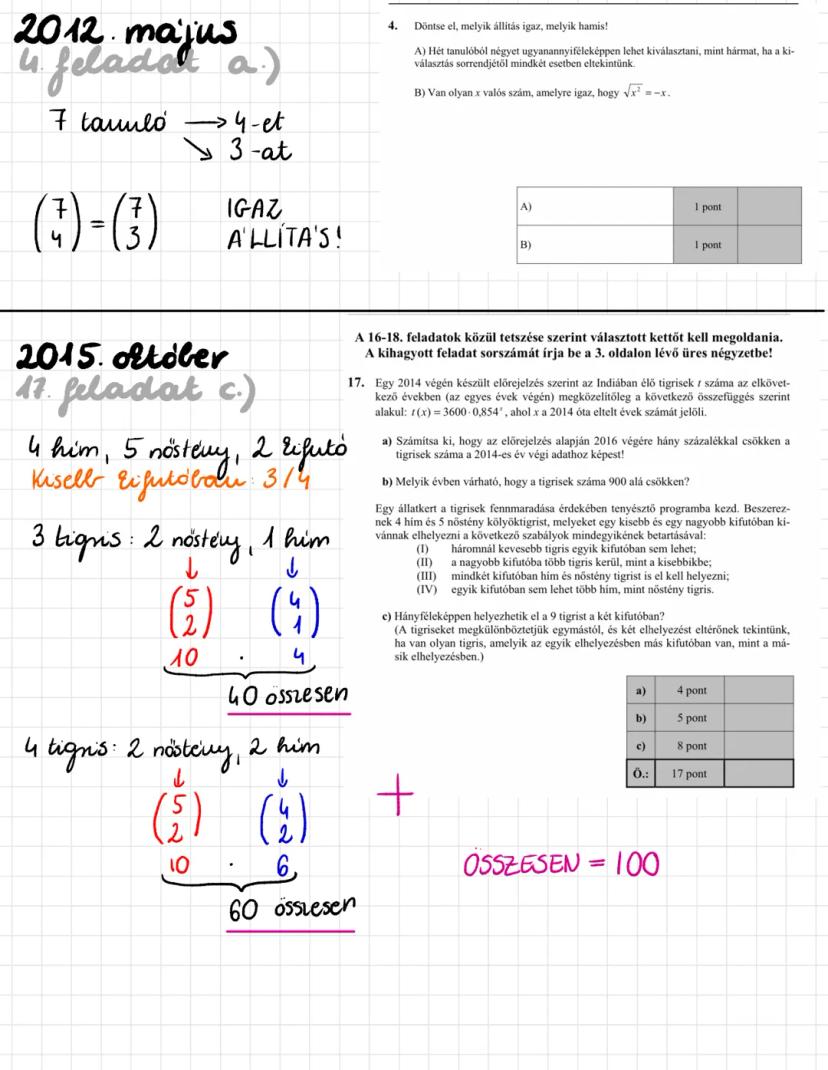 2012. május
4. feladat a.)
7 tanuló → 4-et
↘ 3-at
(7 4) = (7 3) IGAZ ÁLLÍTÁS!
4. Döntse el, melyik állítás igaz, melyik hamis!
A) Hét tanulóból négyet ugyanannyiféleképpen lehet kiválasztani, mint hármat, ha a ki-
választás sorrendjétől mindkét esetben eltekintünk.
B) Van olyan x valós szám, amelyre igaz, hogy √x² = −x.
A) 1 pont
B) 1 pont
2015. október
17. feladat c.)
4 hím, 5 nőstény, 2 kifutó
Kisebb kifutóban: 3/4
3 tigris: 2 nőstény, 1 hím
↓ ↓
(5 2) (4 1)
10 · 4
40 összesen
4 tigris: 2 nőstény, 2 hím
↓ ↓
(5 2) (4 2)
10 · 6
60 összesen
A 16-18. feladatok közül tetszése szerint választott kettőt kell megoldania.
A kihagyott feladat sorszámát írja be a 3. oldalon lévő üres négyzetbe!
17. Egy 2014 végén készült előrejelzés szerint az Indiában élő tigrisek t száma az elkövet-
kező években (az egyes évek végén) megközelítőleg a következő összefüggés szerint
alakul: t(x) = 3600·0,854ˣ, ahol x a 2014 óta eltelt évek számát jelöli.
a) Számítsa ki, hogy az előrejelzés alapján 2016 végére hány százalékkal csökken a
tigrisek száma a 2014-es év végi adathoz képest!
b) Melyik évben várható, hogy a tigrisek száma 900 alá csökken?
Egy állatkert a tigrisek fennmaradása érdekében tenyésztő programba kezd. Beszerez-
nek 4 hím és 5 nőstény kölyöktigrist, melyeket egy kisebb és egy nagyobb kifutóban kí-
vánnak elhelyezni a következő szabályok mindegyikének betartásával:
(I) háromnál kevesebb tigris egyik kifutóban sem lehet;
(II) a nagyobb kifutóba több tigris kerül, mint a kisebbikbe;
(III) mindkét kifutóban hím és nőstény tigrist is el kell helyezni;
(IV) egyik kifutóban sem lehet több hím, mint nőstény tigris.
c) Hányféleképpen helyezhetik el a 9 tigrist a két kifutóban?
(A tigriseket megkülönböztetjük egymástól, és két elhelyezést eltérőnek tekintünk,
ha van olyan tigris, amelyik az egyik elhelyezésben más kifutóban van, mint a má-
sik elhelyezésben.)
a) 4 pont
b) 5 pont
c) 8 pont
Ö.: 17 pont
+
ÖSSZESEN = 100